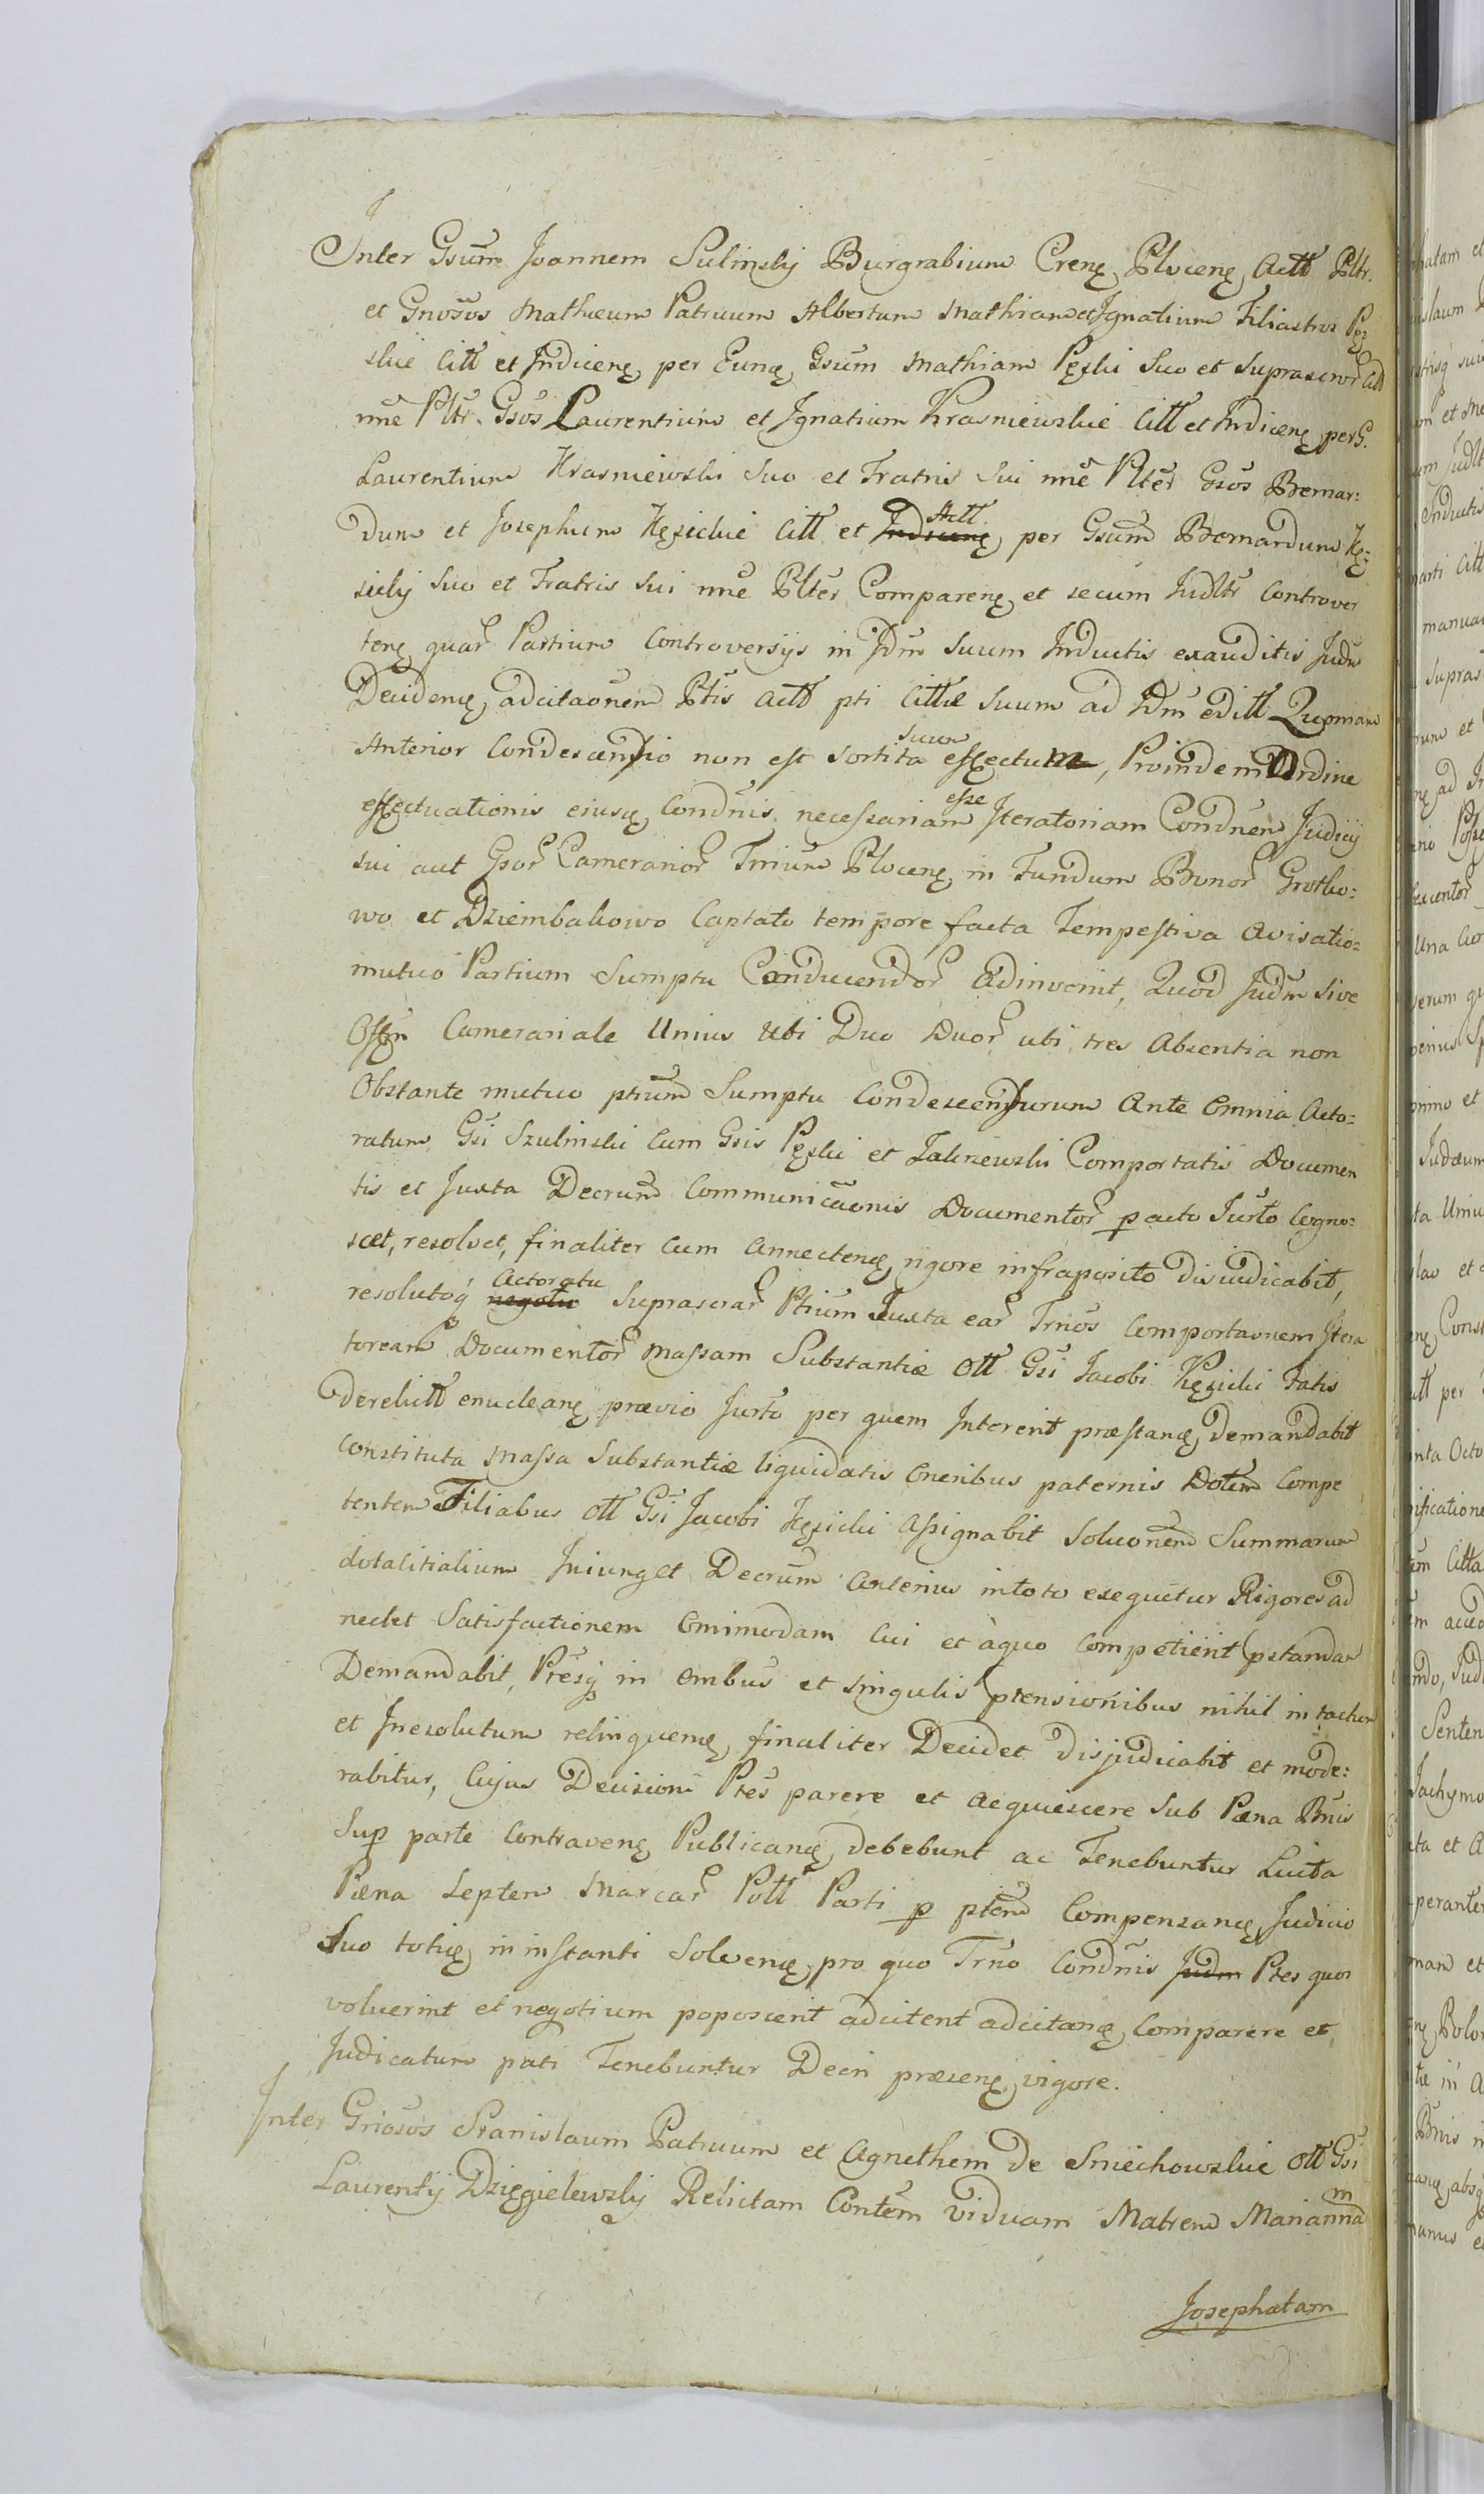 Inter Gsum Joannem Sulinsky Burgrabium Crenę Plocenę Actt Pltr.
et Gnosos Mathæum Patruum Albertum Mathiam et Ignatium Filiastros Pę:
skie Citt et Indicenę per Eunę Gsum Mathiam Pęski Suo et Suprascror Citt
nne Pltr. Gsos Laurentium et Ignatium Krasniewskie Citt et Indicenę per G.
Laurentium Krasniewski Suo et Fratris Sui nne Plter Gsos Bernar:
dum et Josephum Kęsickie Citt et Indicenę Actt per Gsum Bernardum Kę:
sicky Suo et Fratris Sui nne Plter Comparenę et secum Judltr Controver
tenę quar Partium Controversijs in Jdm Suum Inductis exauditis Judm
Decidenę adcitaonem Ptis Actt pti Cittæ Suum ad Jdm editt Quoniam
Anterior Condescensio non est Sortita suum effectum, Proinde in Ordine
effectuationis eiusę Condnis necessariam esse Iteratoriam Condnem Judicij
sui aut Gsor Camerarior Trrium Plocenę in Fundum Bonor Grotko:
wo et Dziembakowo Captato tempore facta Tempestiva Avisatio:
mutuo Partium Sumptu Conducendor Adinvenit, Quod Judm sive
Offm Camerariale Unius ubi Duo Duor ubi tres Absentia non
Obstante mutuo ptium Sumptu Condescensurum Ante Omnia Acto:
ratum Gsi Szulinski Cum Gsis Pęski et Zakrzewski Comportatis Documen
tis et Juxta Decrum Communicaonis Documentor peracto Jurto Cogno:
scet, resolvet, finaliter Cum Annectenę rigore infraposito Disiudicabit,
resolutoq negotio Actoratu Suprascrar Ptium Juxta ear Trnos Comportaonem Itera
toream Documentor Massam Substantiæ Ott Gsi Jacobi Kęsicki Fatis
derelitt enucleanę prævio Jurto per quem Intererit præstanę Demandabit
Constituta Massa Substantiæ liquidatis Oneribus paternis Dotem Compe
tentem Filiabus Ott Gsi Jacobi Kęsicki Assignabit Soluonem Summarum
dotalitialium Iniunget Decrum Anterius in toto exequetur Rigores ad
nectet Satisfactionem Omnimodam Cui et à quo Competierit pstandam
Demandabit, Ptesq in Ombus et Singulis ptensionibus nihil intactum
et Inresolutum relinquenę, finaliter Decidet disjudicabit et mode:
rabitur, Cujus Decisioni Ptes parere et Acquiescere Sub Pæna Bnis
Sup parte Contravenę Publicanę debebunt ac Tenebuntur Luita
Pæna Septem Marcar Pott Parti p ptem Compensanę, Judicio
Suo totię in instanti Solvenę, pro quo Trno Condnis Judm Ptes quos
voluerint et negotium poposcerit adcitent adcitanę Comparere et
Judicatum pati Tenebuntur Decri præsenę vigore.
Inter Gnosos Stanislaum Patruum et Agnethem De Sniechowskie Ott Gsi
Laurentij Dzięgielewsky Relictam Contem Viduam Matrem Mariannam
Josephatam